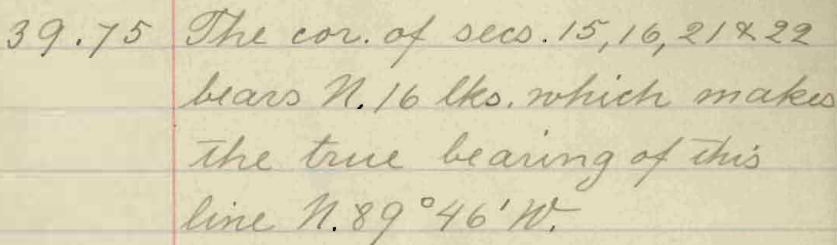 39.75 The cor. of secs. 15, 16, 21 & 22
bears N. 16 lks. which makes
the true bearing of this
line N. 89° 46' W.